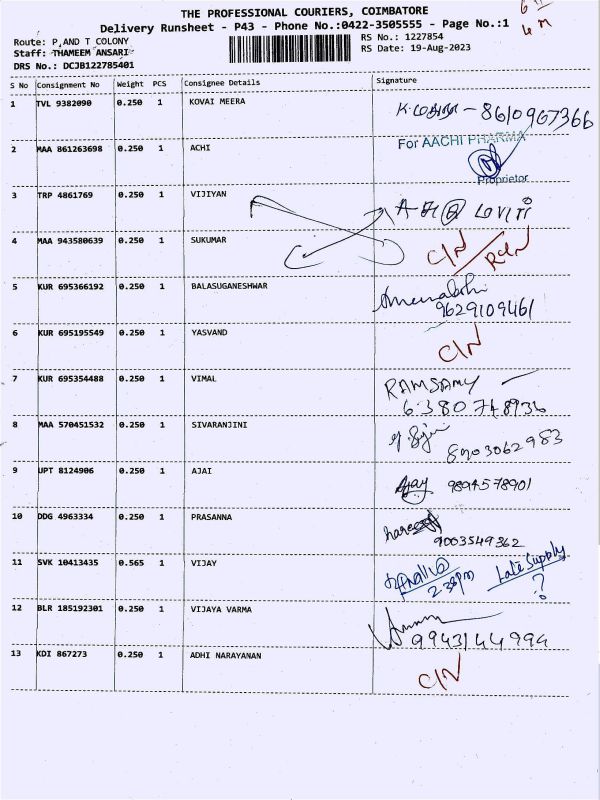 THE PROFESSIONAL COURIERS, COIMBATORE
Delivery Runsheet - P43 - Phone No.:0422-3505555 - Page No.:1
Route: P,AND T COLONY
RS No.: 1227854
Staff: THAMEEM ANSARI
RS Date: 19-Aug-2023
DRS No.: DCJB122785401
S No Consignment No Weight PCS Consignee Details Signature
1 TVL 9382090 0.250 1 KOVAI MEERA 8610967366
2 MAA 861263698 0.250 1 ACHI For AACHI PHARMA
Proprietor
3 TRP 4861769 0.250 1 VIJIYAN
4 MAA 943580639 0.250 1 SUKUMAR C/N
5 KUR 695366192 0.250 1 BALASUGANESHWAR
9629109461
6 KUR 695195549 0.250 1 YASVAND C/N
7 KUR 695354488 0.250 1 VIMAL RAMSAMY
6380748936
8 MAA 570451532 0.250 1 SIVARANJINI 8903062983
9 UPT 8124906 0.250 1 AJAI Ajay 9894578901
10 DDG 4963334 0.250 1 PRASANNA
9003549362
11 SVK 10413435 0.565 1 VIJAY Late Supply
?
12 BLR 185192301 0.250 1 VIJAYA VARMA
9943144994
13 KDI 867273 0.250 1 ADHI NARAYANAN C/N